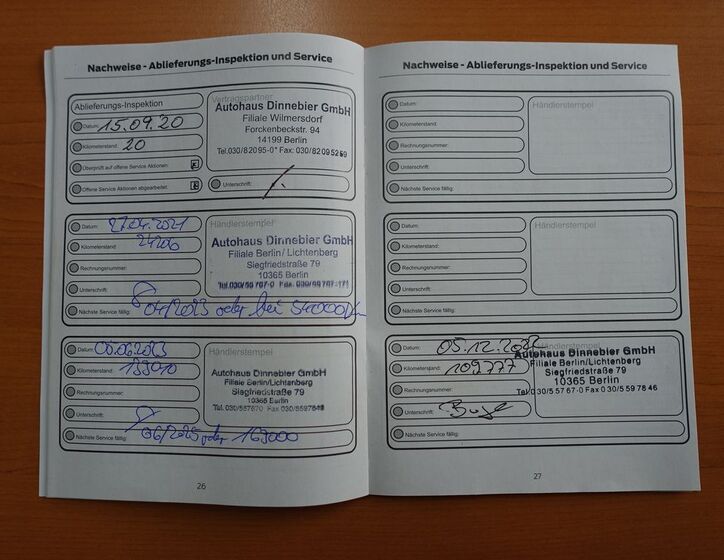 Nachweise - Ablieferungs-Inspektion und Service
Ablieferungs-Inspektion
Datum: 15.09.20
Kilometerstand: 20
Überprüft auf offene Service Aktionen:
Offene Service Aktionen abgearbeitet:
Vertragspartner
Autohaus Dinnebier GmbH
Filiale Wilmersdorf
Forckenbeckstr. 94
14199 Berlin
Tel.030/82095-0* Fax: 030/82095259
Unterschrift:
Datum: 27.04.2021
Kilometerstand: 24200
Rechnungsnummer:
Unterschrift:
Nächste Service fällig: 04/2023 oder bei 54000 km
Händlerstempel
Autohaus Dinnebier GmbH
Filiale Berlin/Lichtenberg
Siegfriedstraße 79
10365 Berlin
Datum: 06.06.2023
Kilometerstand:
Rechnungsnummer:
Unterschrift:
Nächste Service fällig: 06/2025 oder 169000
Händlerstempel
Autohaus Dinnebier GmbH
Filiale Berlin/Lichtenberg
Siegfriedstraße 79
10365 Berlin
Tel. 030/557670 Fax 030/5597846
26
Nachweise - Ablieferungs-Inspektion und Service
Datum:
Kilometerstand:
Rechnungsnummer:
Unterschrift:
Nächste Service fällig:
Händlerstempel
Datum:
Kilometerstand:
Rechnungsnummer:
Unterschrift:
Nächste Service fällig:
Händlerstempel
Datum: 05.12.2022
Kilometerstand: 109777
Rechnungsnummer:
Unterschrift:
Nächste Service fällig:
Autohaus Dinnebier GmbH
Filiale Berlin/Lichtenberg
Siegfriedstraße 79
10365 Berlin
Tel 030/5 57 67-0 Fax 030/5 59 78 46
27